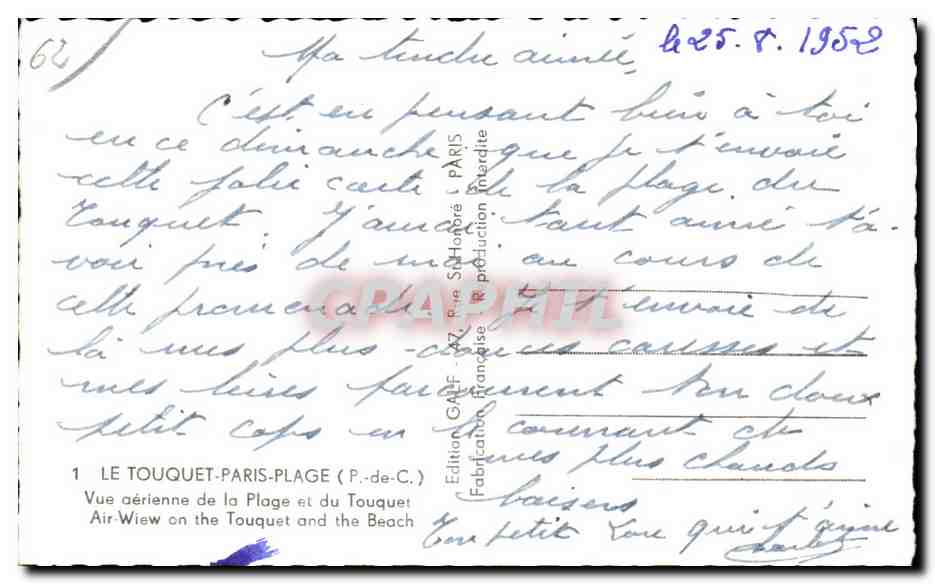 62
le 25. 8. 1952
Ma tendre aimée,
C'est en pensant bien à toi
en ce dimanche que je t'envoie
cette jolie carte de la plage du
Touquet. J'aurai tant aimé t'a-
voir près de moi au cours de
cette promenade. Je t'envoie de
là mes plus douces caresses et
mes lèvres parcourent ton doux
petit corps en le couvrant de
mes plus chauds
baisers
Ton petit Lou qui t'aime
Edition GALF - 47, Rue St-Honoré - PARIS
Fabrication Française - Reproduction Interdite
CPAPHIL
1 LE TOUQUET-PARIS-PLAGE (P.-de-C.)
Vue aérienne de la Plage et du Touquet
Air-Wiew on the Touquet and the Beach